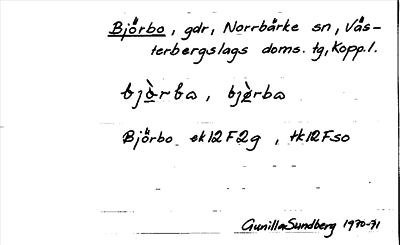 Björbo, gdr, Norrbärke sn, Väs-
terbergslags doms. tg, Kopp.l.
bjò̱rba, bjè̱rba
Björbo ek12F2g, tk12Fso
Gunilla Sundberg 1970-71